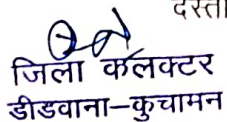 दस्ता
जिला कलक्टर
डीडवाना–कुचामन